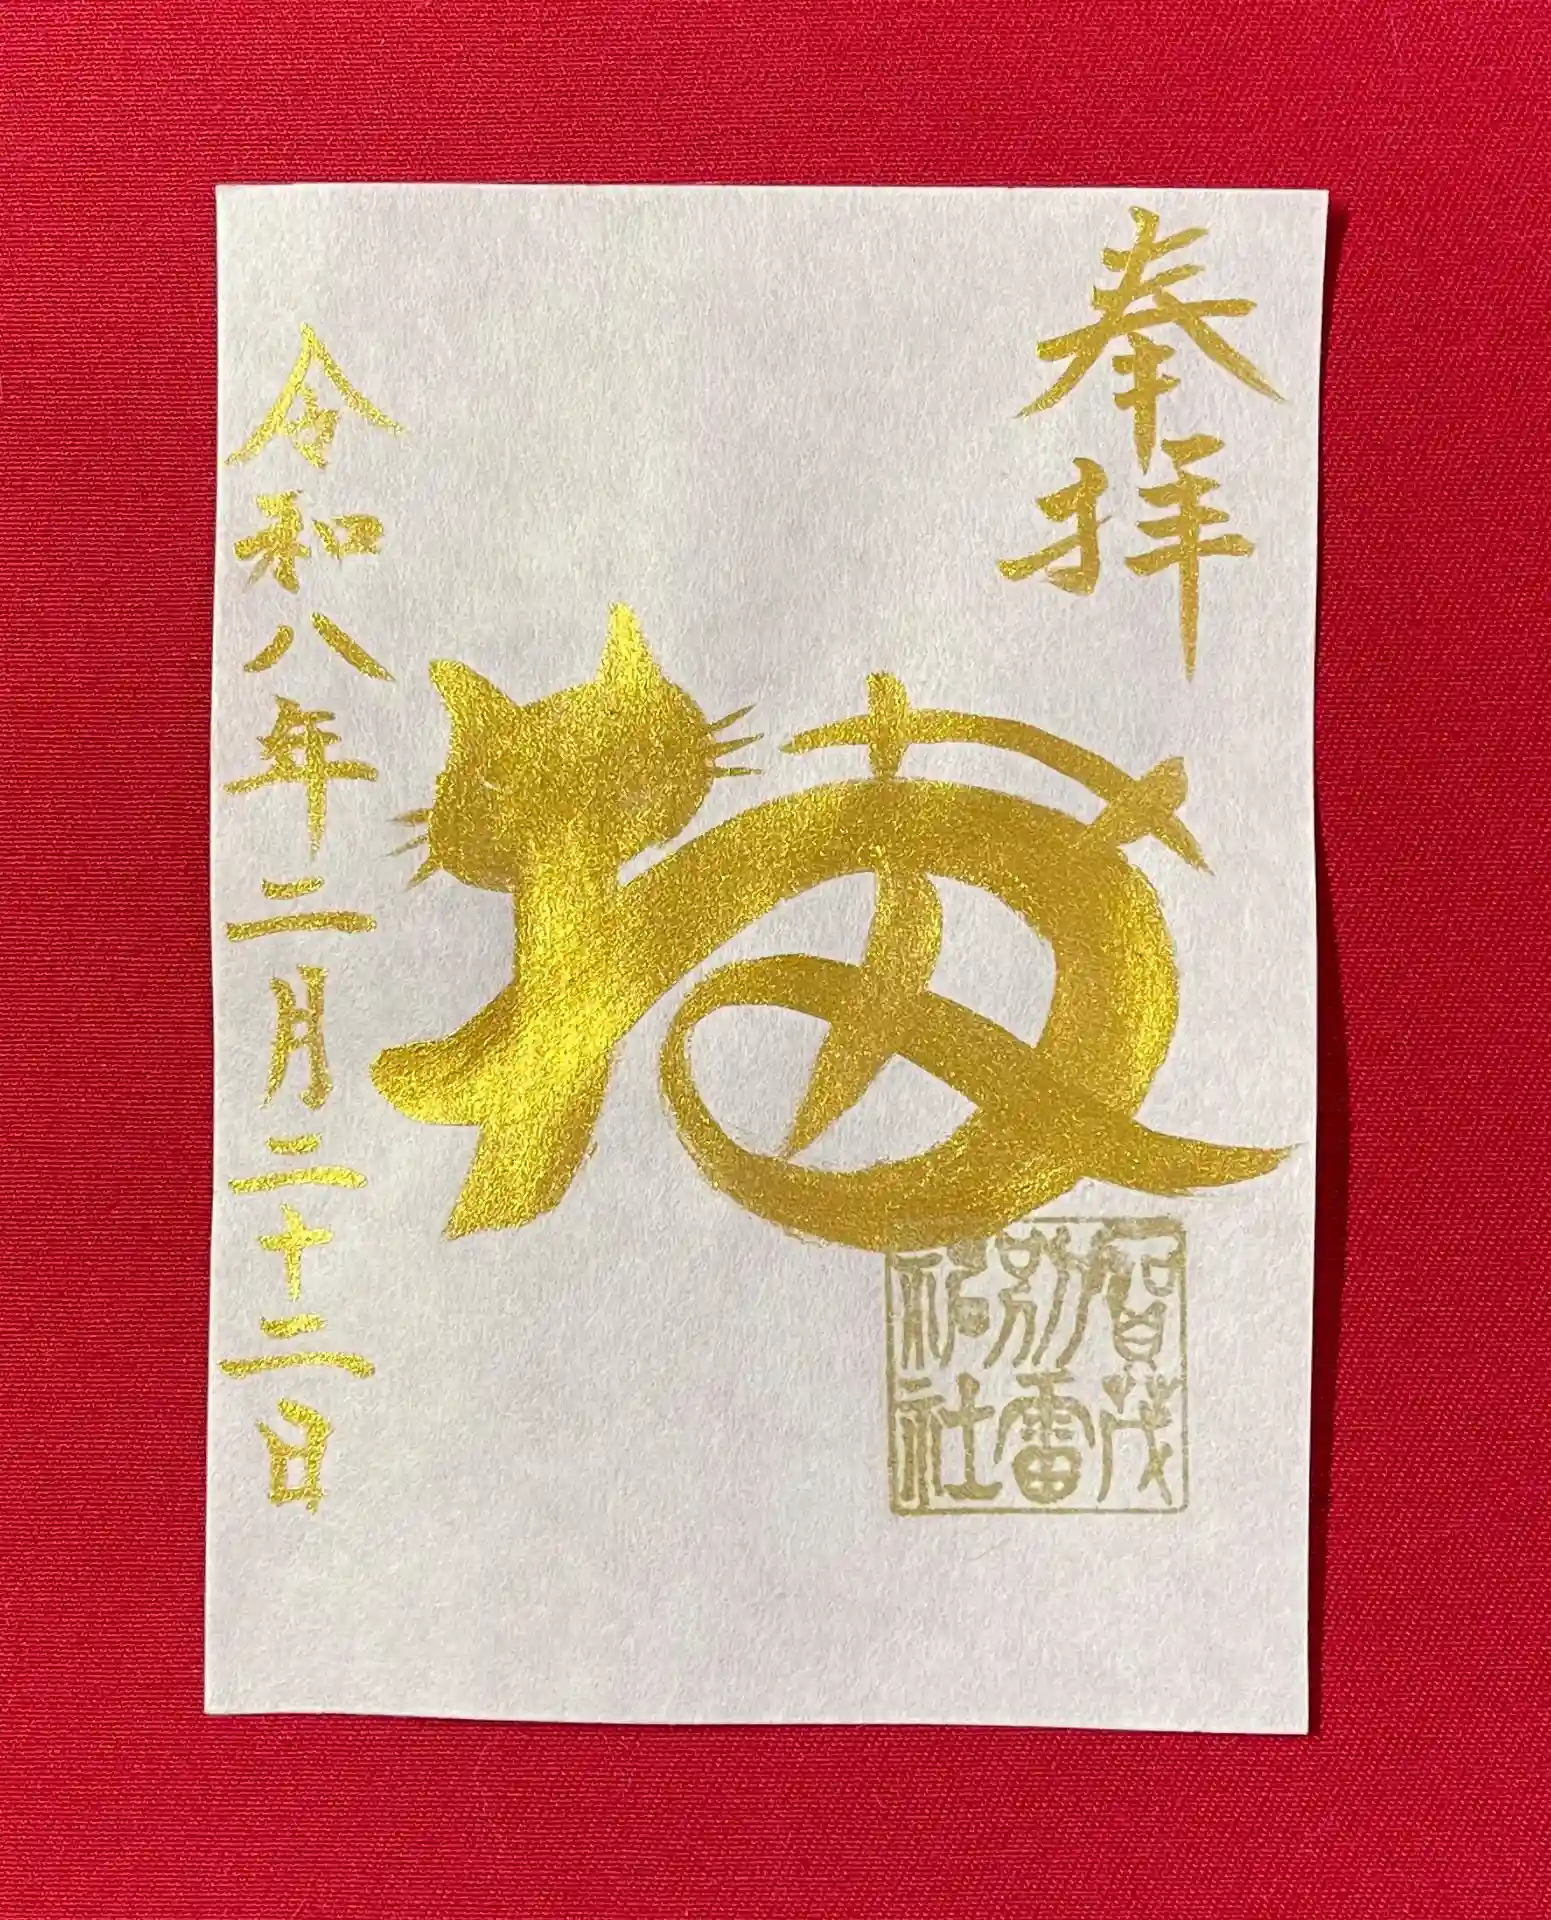 奉拝
賀茂
別雷
神社
令和八年二月二十二日